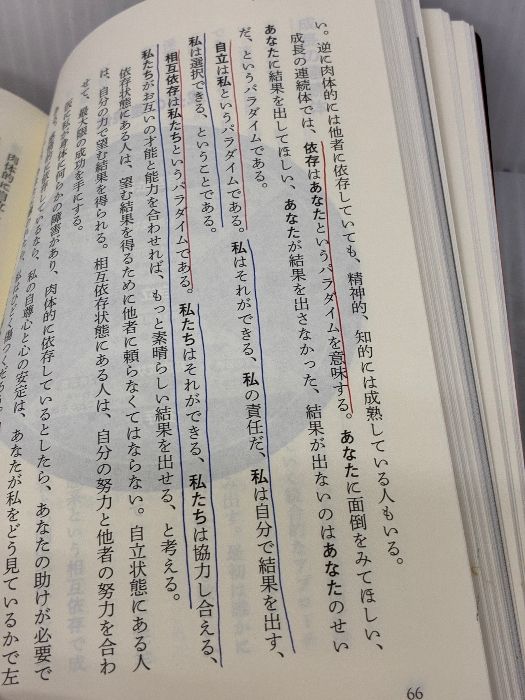 い。逆に肉体的には他者に依存していても、精神的、知的には成熟している人もいる。
成長の連続体では、依存はあなたというパラダイムを意味する。あなたに面倒をみてほしい、
あなたに結果を出してほしい、あなたが結果を出さなかった、結果が出ないのはあなたのせい
だ、というパラダイムである。
自立は私というパラダイムである。私はそれができる、私の責任だ、私は自分で結果を出す、
私は選択できる、ということである。
相互依存は私たちというパラダイムである。私たちはそれができる、私たちは協力し合える、
私たちがお互いの才能と能力を合わせれば、もっと素晴らしい結果を出せる、と考える。
依存状態にある人は、望む結果を得るために他者に頼らなくてはならない。自立状態にある人
は、自分の力で望む結果を得られる。相互依存状態にある人は、自分の努力と他者の努力を合わ
せて、最大限の成功を手にする。
仮に私が身体に何らかの障害があり、肉体的に依存しているとしたら、あなたの助けが必要で
感情的に依存しているなら、私の自尊心と心の安定は、あなたが私をどう見ているかで左
肉体的に自立
66